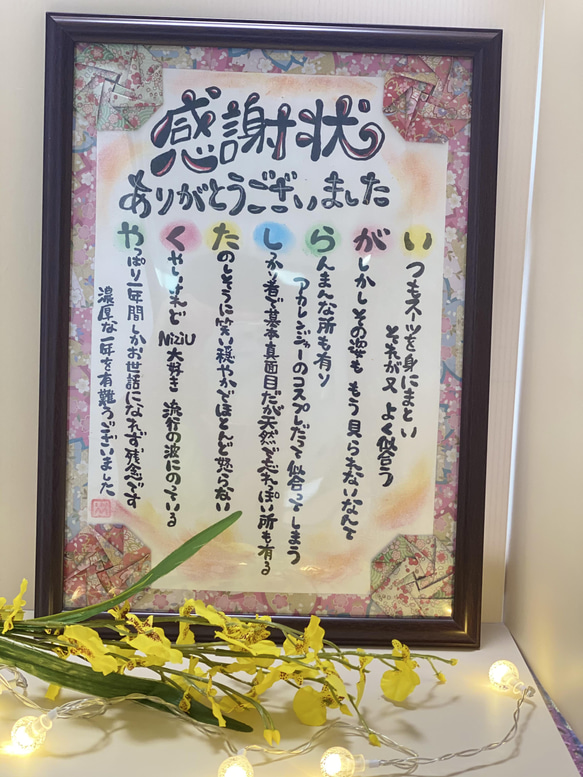 感謝状
ありがとうございました
いつもスーツを身にまとい
それが又 よく似合う
がしかしその姿も もう見られないなんて
らんまんな所も有り
アカレンジャーのコスプレだって似合ってしまう
しっかり者で基本真面目だが天然で忘れっぽい所も有る
たのしそうに笑い穏やかでほとんど怒らない
くやしいけれど NiziU 大好き 流行の波にのっている
やっぱり一年間しかお世話になれず残念です
濃厚な一年を有難うございました